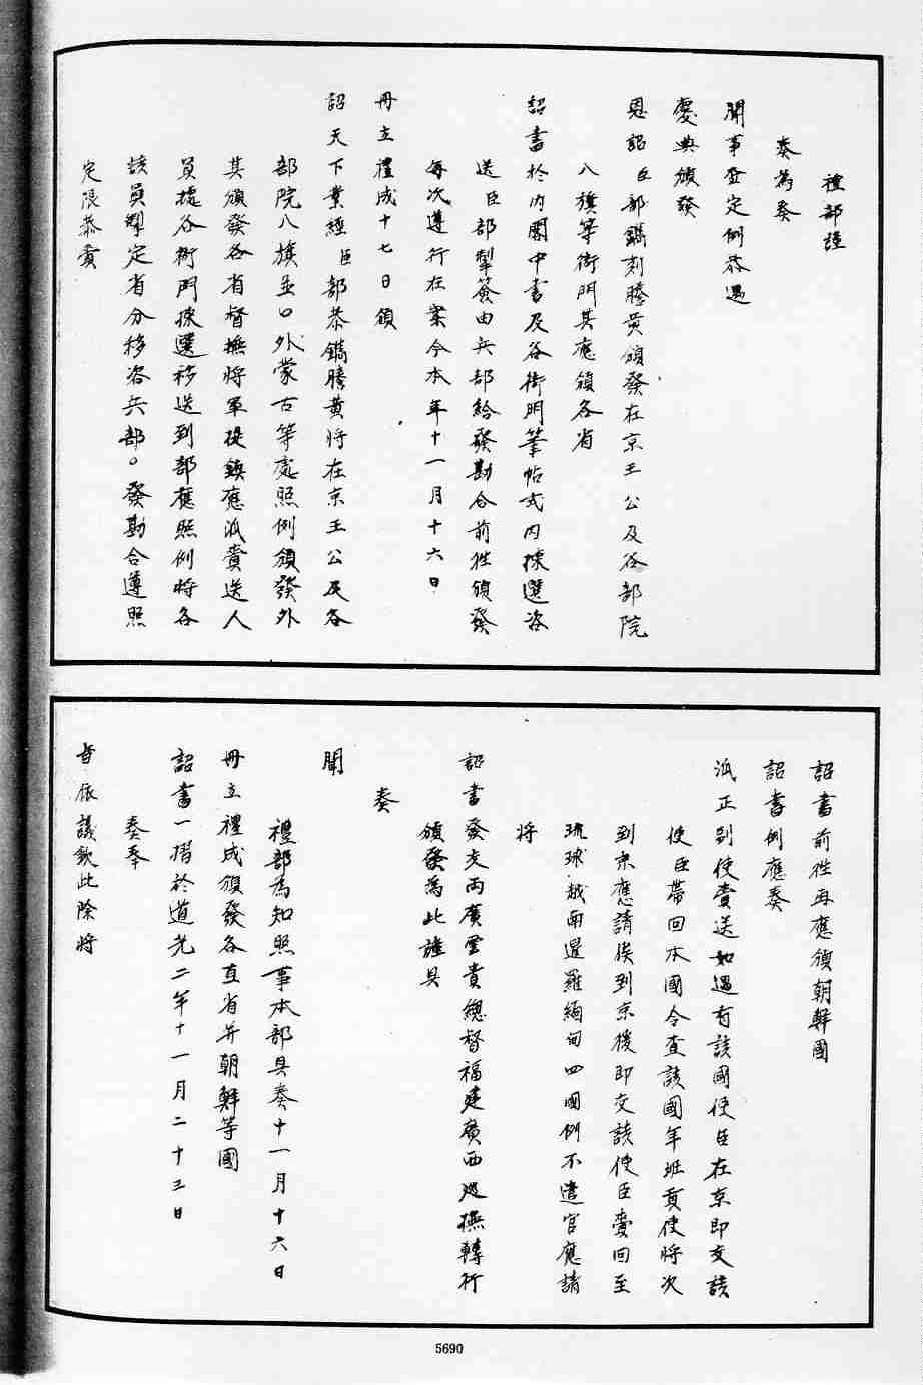 禮部謹
奏為奏
聞事查定例恭遇
慶典頒發
恩詔臣部鐫刻謄黃頒發在京王公及各部院
八旗等衙門其應頒各省
詔書於內閣中書及各衙門筆帖式內揀選咨
送臣部掣簽由兵部給發勘合前往頒發
每次遵行在案今本年十一月十六日
冊立禮成十七日頒
詔天下業經臣部恭鐫謄黃將在京王公及各
部院八旗並口外蒙古等處照例頒發外
其頒發各省督撫將軍提鎮應派賫送人
員據各衙門揀選移送到部應照例將各
該員掣定省分移咨兵部。發勘合遵照
定限恭賫
詔書前往再應頒朝鮮國
詔書例應奏
派正副使賫送如遇有該國使臣在京即交該
使臣帶回本國今查該國年班貢使將次
到京應請俟到京後即交該使臣賫回至
琉球越南暹羅緬甸四國例不遣官應請
將
詔書發交兩廣雲貴總督福建廣西巡撫轉行
頒發為此謹具
奏
聞
禮部為知照事本部具奏十一月十六日
冊立禮成頒發各直省并朝鮮等國
詔書一摺於道光二年十一月二十三日
奏奉
旨依議欽此除將
5690